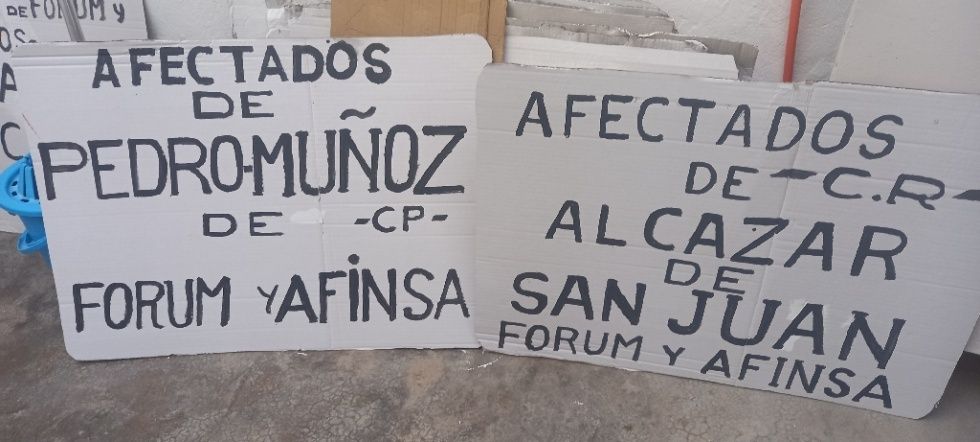 DE FORUM y
AFECTADOS
DE
PEDRO-MUÑOZ
DE -CP-
FORUM Y AFINSA
AFECTADOS
DE - C.R-
ALCAZAR
DE
SAN JUAN
FORUM Y AFINSA